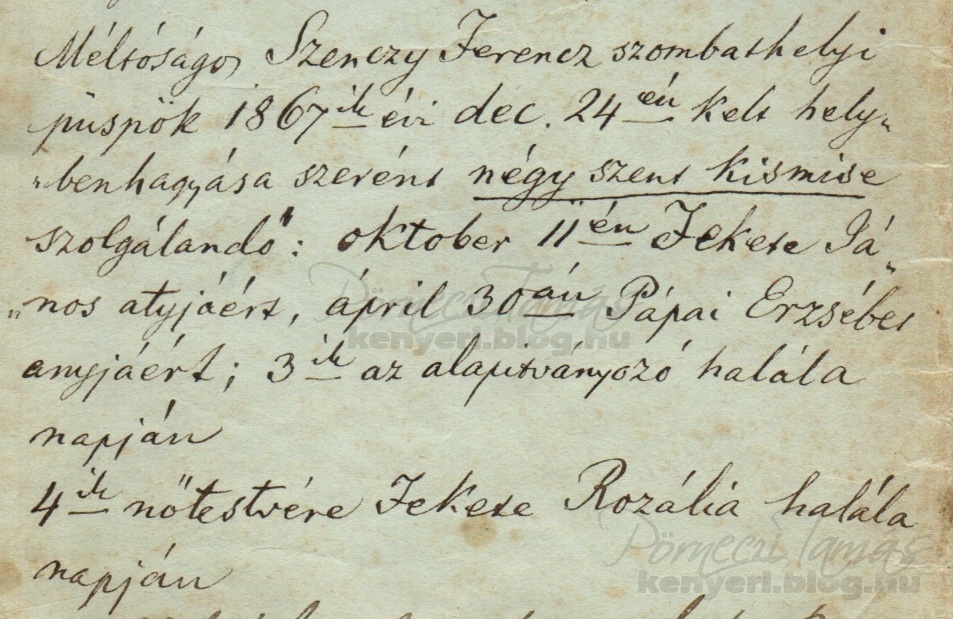 Méltóságos Szenczy Ferencz szombathelyi
püspök 1867ik évi dec. 24én kelt hely„
„benhagyása szerént négy szent kismise
szolgálandó: oktober 11én Fekete Já„
„nos atyjáért, ápril 30án Pápai Erzsébet
anyjáért; 3ik az alapitványozó halála
napján
4ik nőtestvére Fekete Rozália halála
napján
Pörneczi Tamás
kenyeri.blog.hu
Pörneczi Tamás
kenyeri.blog.hu